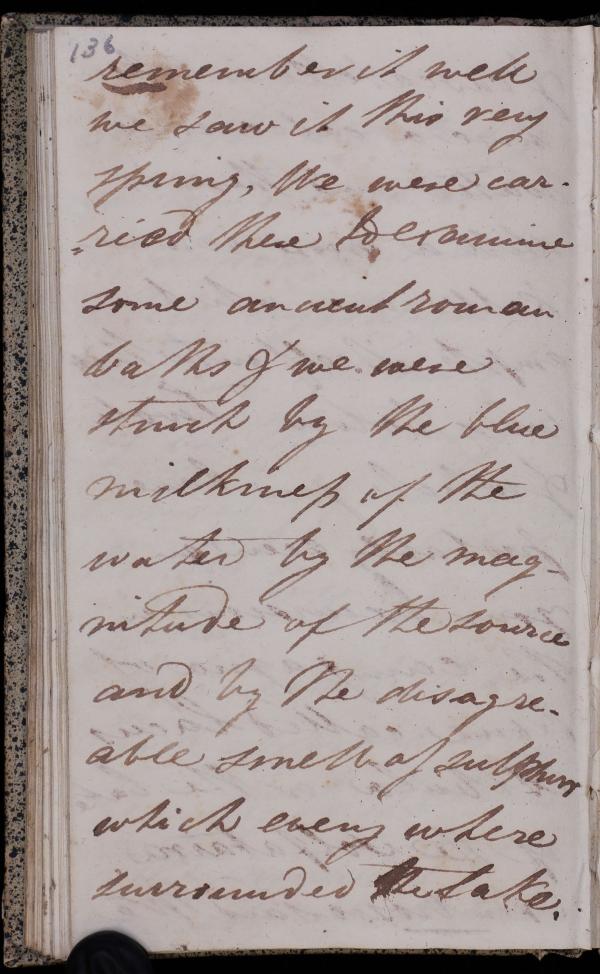 136
remember it well
we saw it this very
spring, We were car-
=ried there to examine
some ancient roman
baths & we were
struck by the blue
milkiness of the
water by the mag-
nitude of the source
and by the disagre-
able smell of sulphur
which every where
surrounded the Lake.